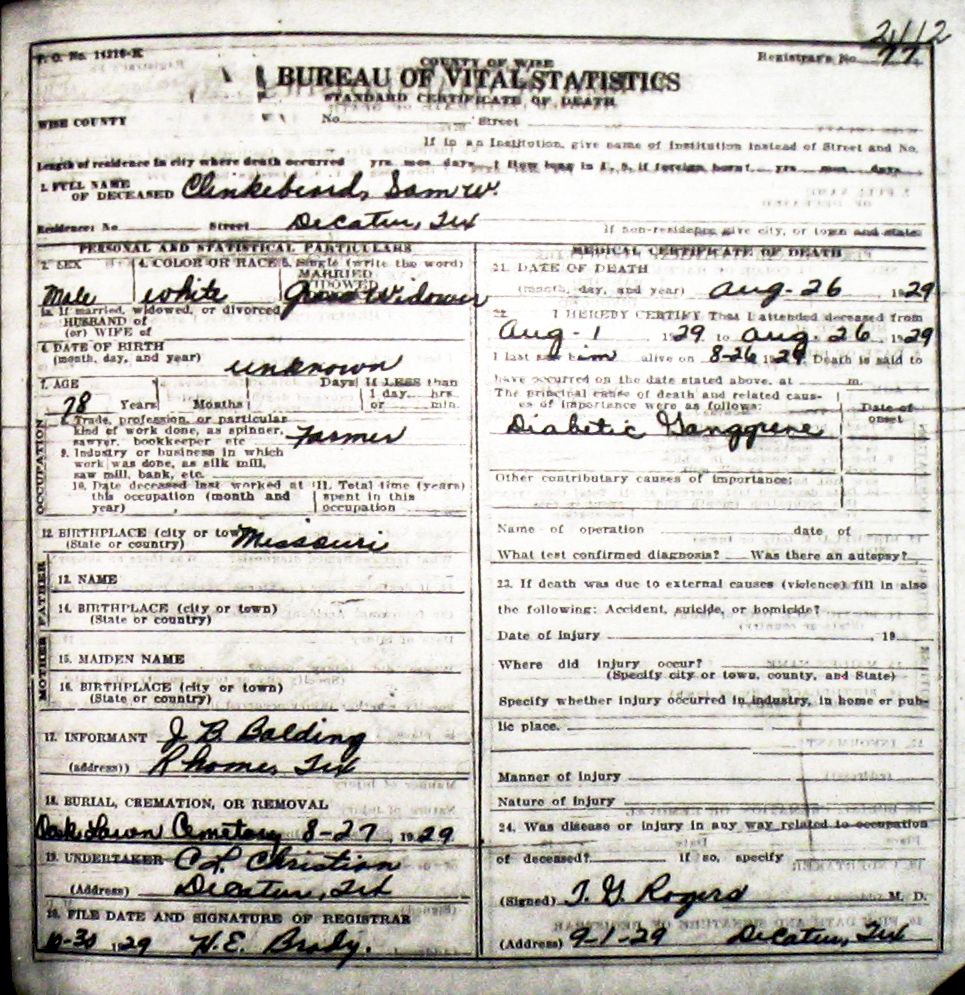 2112
F. O. No. 14226-K
COUNTY OF WISE
Registrar's No. 77
BUREAU OF VITAL STATISTICS
STANDARD CERTIFICATE OF DEATH
WISE COUNTY
No. Street
If in an Institution, give name of Institution instead of Street and No.
Length of residence in city where death occurred yrs. mos. days. How long in U. S. if foreign born? yrs. mos. days.
1. FULL NAME OF DECEASED Clinkebeard, Sam W.
Residence: No. Street Decatur, Tex
If non-residence give city, or town and state
PERSONAL AND STATISTICAL PARTICULARS
2. SEX 4. COLOR OR RACE 5. Single (write the word)
MARRIED
WIDOWED
Male white Grass Widower
5a. If married, widowed, or divorced
HUSBAND of
(or) WIFE of
6. DATE OF BIRTH
(month, day, and year) unknown
7. AGE Days If LESS than
1 day, hrs.
78 Years Months or min.
OCCUPATION
8. Trade, profession, or particular
kind of work done, as spinner,
sawyer, bookkeeper etc Farmer
9. Industry or business in which
work was done, as silk mill,
saw mill, bank, etc.
10. Date deceased last worked at 11. Total time (years)
this occupation (month and spent in this
year) occupation
12. BIRTHPLACE (city or town)
(State or country) Missouri
FATHER
13. NAME
14. BIRTHPLACE (city or town)
(State or country)
MOTHER
15. MAIDEN NAME
16. BIRTHPLACE (city or town)
(State or country)
17. INFORMANT J B Balding
(address)) Rhome, Tex
18. BURIAL, CREMATION, OR REMOVAL
Oak Lawn Cemetary 8-27, 1929
19. UNDERTAKER C. L. Christian
(Address) Decatur, Tex
20. FILE DATE AND SIGNATURE OF REGISTRAR
10-30 1929 H. E. Brady.
MEDICAL CERTIFICATE OF DEATH
21. DATE OF DEATH
(month, day, and year) Aug-26, 1929
22. I HEREBY CERTIFY That I attended deceased from
Aug-1 1929 to Aug. 26 1929
I last saw him alive on 8-26 1929. Death is said to
have occurred on the date stated above, at m.
The principal cause of death and related causes of importance were as follows:
Date of onset
Diabetic Ganggrene
Other contributary causes of importance:
Name of operation date of
What test confirmed diagnosis? Was there an autopsy?
23. If death was due to external causes (violence) fill in also
the following: Accident, suicide, or homicide?
Date of injury , 19
Where did injury occur?
(Specify city or town, county, and State)
Specify whether injury occurred in industry, in home or pub-
lic place.
Manner of injury
Nature of injury
24. Was disease or injury in any way related to occupation
of deceased? If so, specify
(Signed) T. G. Rogers M. D.
(Address) 9-1-29 Decatur, Tex